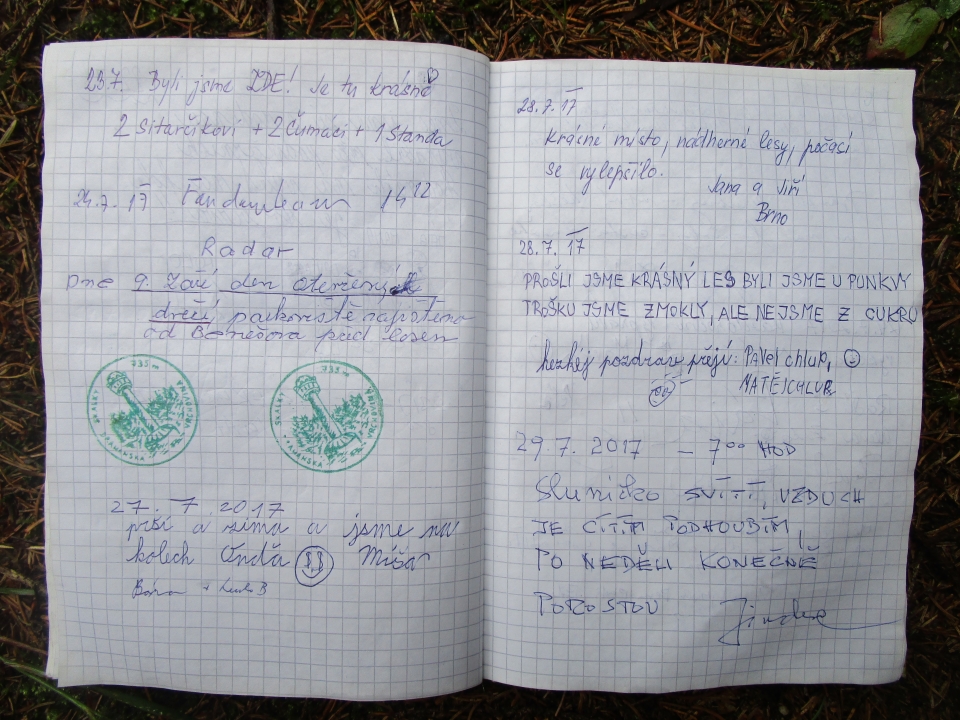 23.7. Byli jsme ZDE! Je tu krásně
2 Sitarčíkovi + 2 Čumáci + 1 Standa
24.7.17 14¹²
Radar
Dne 9. Září den otevřených
dveří, parkoviště najisteno
od Benešova před lesem
735 m
SKALKY
DRAHANSKÁ VRCHOVINA
735 m
SKALKY
DRAHANSKÁ VRCHOVINA
27. 7. 2017
prší a zima a jsme na
kolech Ondra Míša
28.7.17
Krásné místo, nádherné lesy, počasí
se vylepšilo.
Jana a Jiří
Brno
28.7.17
PROŠLI JSME KRÁSNÝ LES BYLI JSME U PUNKVY
TROŠKU JSME ZMOKLY, ALE NEJSME Z CUKRU
hezkej pozdrav přejí: Pavel chlup,
MATĚJ CHLUP
29.7.2017 – 7⁰⁰ HOD
Sluníčko SVÍTÍ, VZDUCH
JE CÍTÍM PODHOUBÍM,
PO NEDĚLI KONEČNĚ
POROSTOU